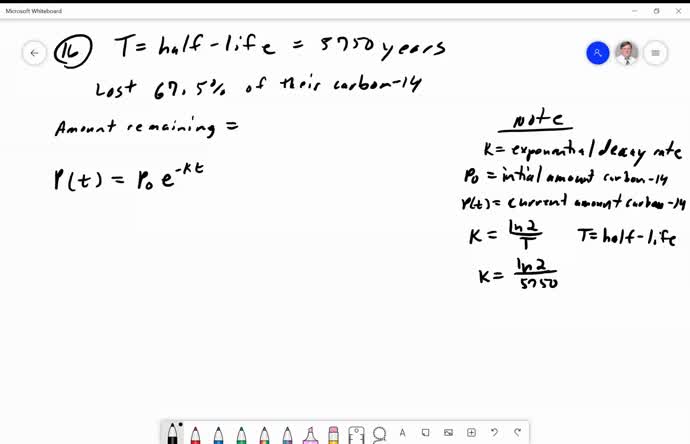 Microsoft Whiteboard
16 T = half-life = 5750 years
Lost 67.5% of their carbon-14
Amount remaining =
P(t) = P₀ e^-kt
note
K = exponential decay rate
P₀ = initial amount carbon-14
P(t) = current amount carbon-14
K = ln2/T T = half-life
K = ln2/5750